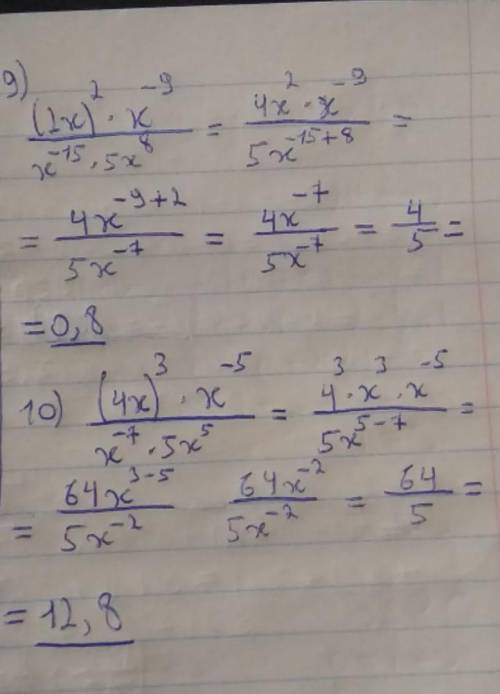 9)
\frac{(2x)^2 \cdot x^{-9}}{x^{-15} \cdot 5x^8} = \frac{4x^2 \cdot x^{-9}}{5x^{-15+8}} =
= \frac{4x^{-9+2}}{5x^{-7}} = \frac{4x^{-7}}{5x^{-7}} = \frac{4}{5} =
= 0,8
10) \frac{(4x)^3 \cdot x^{-5}}{x^{-7} \cdot 5x^5} = \frac{4^3 \cdot x^3 \cdot x^{-5}}{5x^{5-7}} =
= \frac{64x^{3-5}}{5x^{-2}} \frac{64x^{-2}}{5x^{-2}} = \frac{64}{5} =
= 12,8